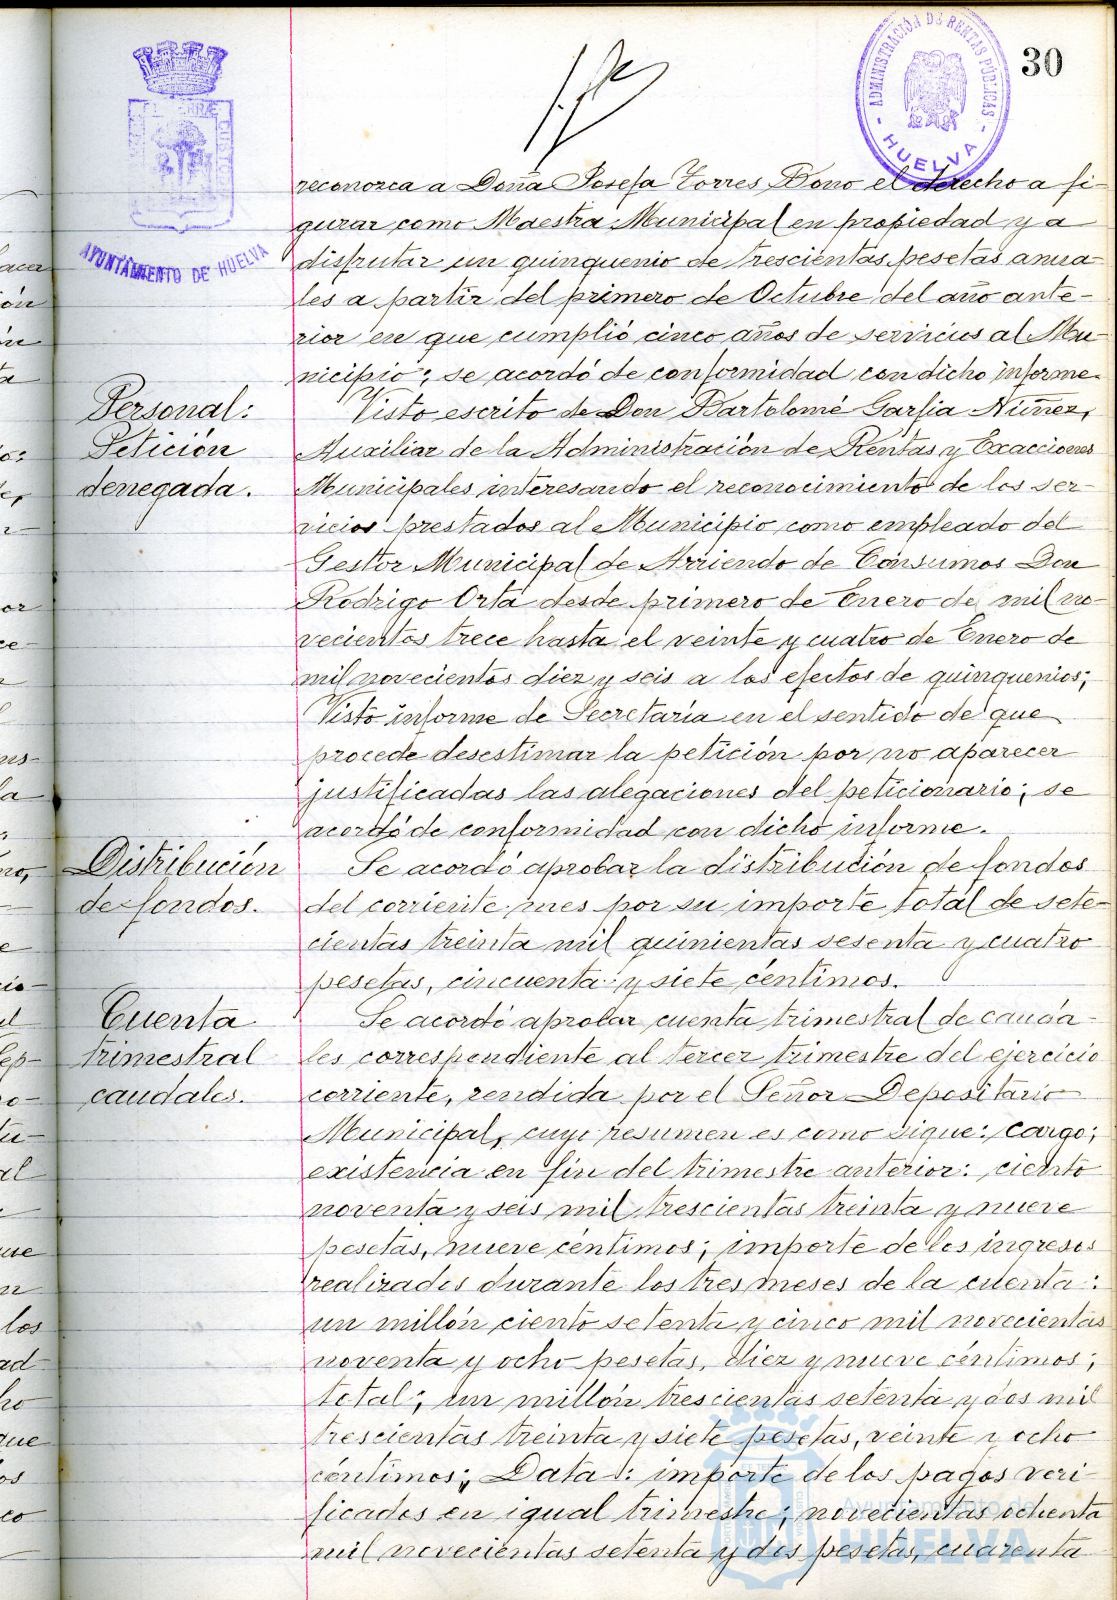 30
ADMINISTRACIÓN DE RENTAS PÚBLICAS
- HUELVA -
AYUNTAMIENTO DE HUELVA
reconozca a Doña Josefa Torres Bono el derecho a fi-
gurar como Maestra Municipal en propiedad y a
disfrutar un quinquenio de trescientas pesetas anua-
les a partir del primero de Octubre del año ante-
rior en que cumplió cinco años de servicios al Mu-
nicipio; se acordó de conformidad con dicho informe.
Personal:
Petición
denegada.
Visto escrito de Don Bartolomé Garfia Núñez,
Auxiliar de la Administración de Rentas y Exacciones
Municipales interesando el reconocimiento de los ser-
vicios prestados al Municipio como empleado del
Gestor Municipal de Arriendo de Consumos Don
Rodrigo Orta desde primero de Enero de mil no-
vecientos trece hasta el veinte y cuatro de Enero de
mil novecientos diez y seis a los efectos de quinquenios;
Visto informe de Secretaría en el sentido de que
procede desestimar la petición por no aparecer
justificadas las alegaciones del peticionario; se
acordó de conformidad con dicho informe.
Distribución
de fondos.
Se acordó aprobar la distribución de fondos
del corriente mes por su importe total de sete-
cientas treinta mil quinientas sesenta y cuatro
pesetas, cincuenta y siete céntimos.
Cuenta
trimestral
caudales.
Se acordó aprobar cuenta trimestral de cauda-
les correspendiente al tercer trimestre del ejercicio
corriente, rendida por el Señor Depositario
Municipal, cuyo resumen es como sigue: cargo;
existencia en fin del trimestre anterior: ciento
noventa y seis mil trescientas treinta y nueve
pesetas, nueve céntimos; importe de los ingresos
realizados durante los tres meses de la cuenta:
un millón ciento setenta y cinco mil novecientas
noventa y ocho pesetas, diez y nueve céntimos;
total; un millón trescientas setenta y dos mil
trescientas treinta y siete pesetas, veinte y ocho
céntimos; Data: importe de los pagos veri-
ficados en igual trimestre; novecientas ochenta
mil novecientas setenta y dos pesetas, cuarenta
Ayuntamiento de
HUELVA